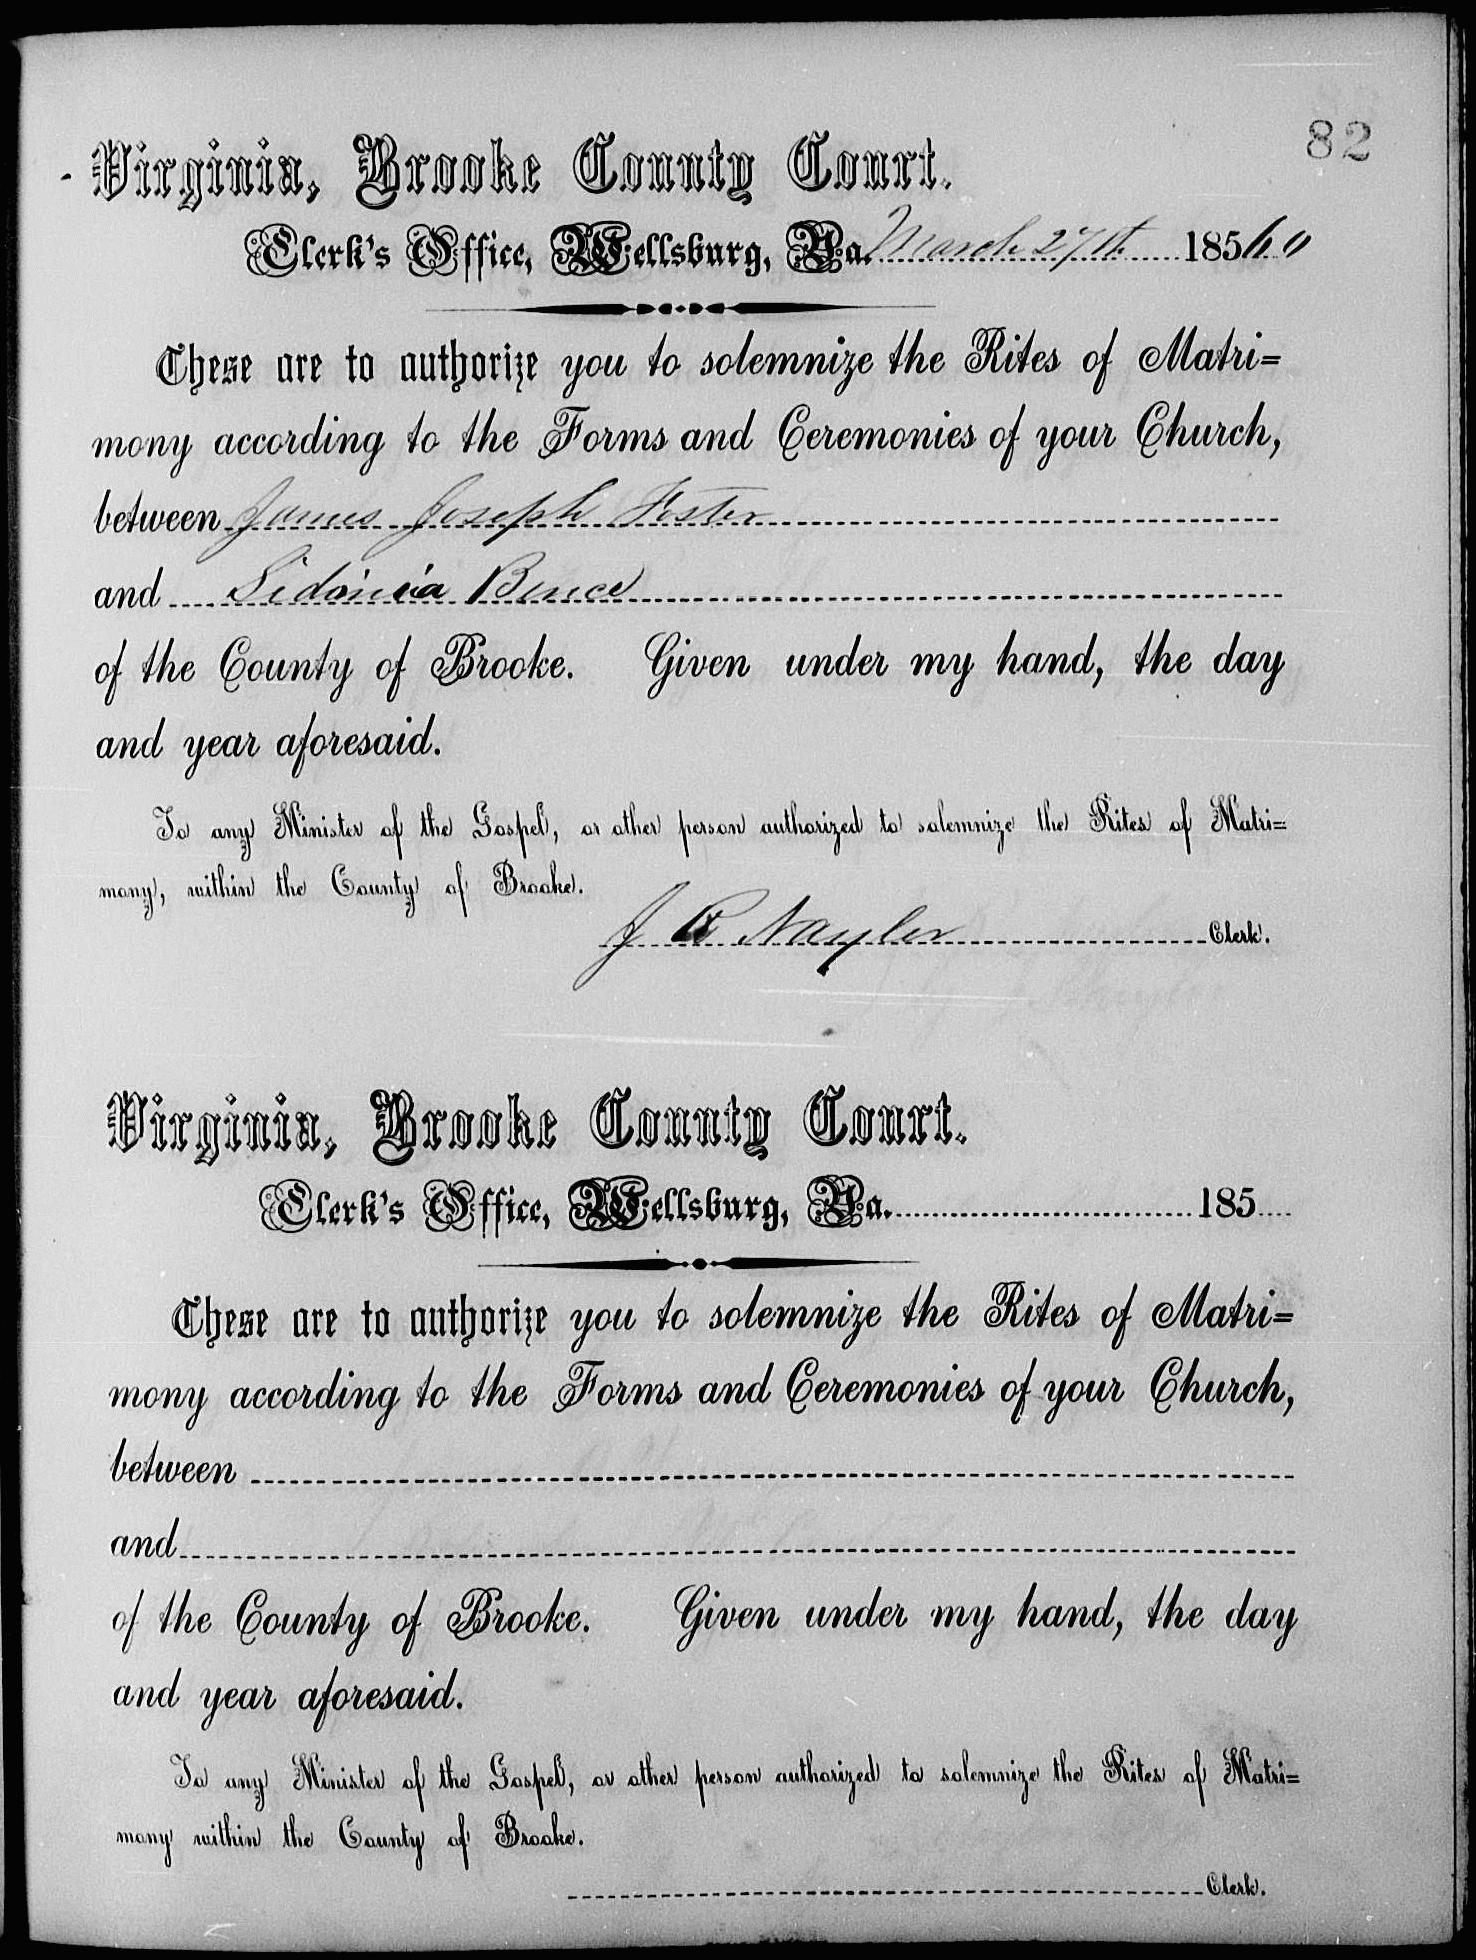 82
Virginia, Brooke County Court.
Clerk's Office, Wellsburg, Va. March 27th 18560
These are to authorize you to solemnize the Rites of Matri=
mony according to the Forms and Ceremonies of your Church,
between James Joseph Foster
and Sidonia Bence
of the County of Brooke. Given under my hand, the day
and year aforesaid.
To any Minister of the Gospel, or other person authorized to solemnize the Rites of Matri=
mony, within the County of Brooke.
J R Naylor Clerk.
Virginia, Brooke County Court.
Clerk's Office, Wellsburg, Va. 185
These are to authorize you to solemnize the Rites of Matri=
mony according to the Forms and Ceremonies of your Church,
between
and
of the County of Brooke. Given under my hand, the day
and year aforesaid.
To any Minister of the Gospel, or other person authorized to solemnize the Rites of Matri=
mony within the County of Brooke.
Clerk.